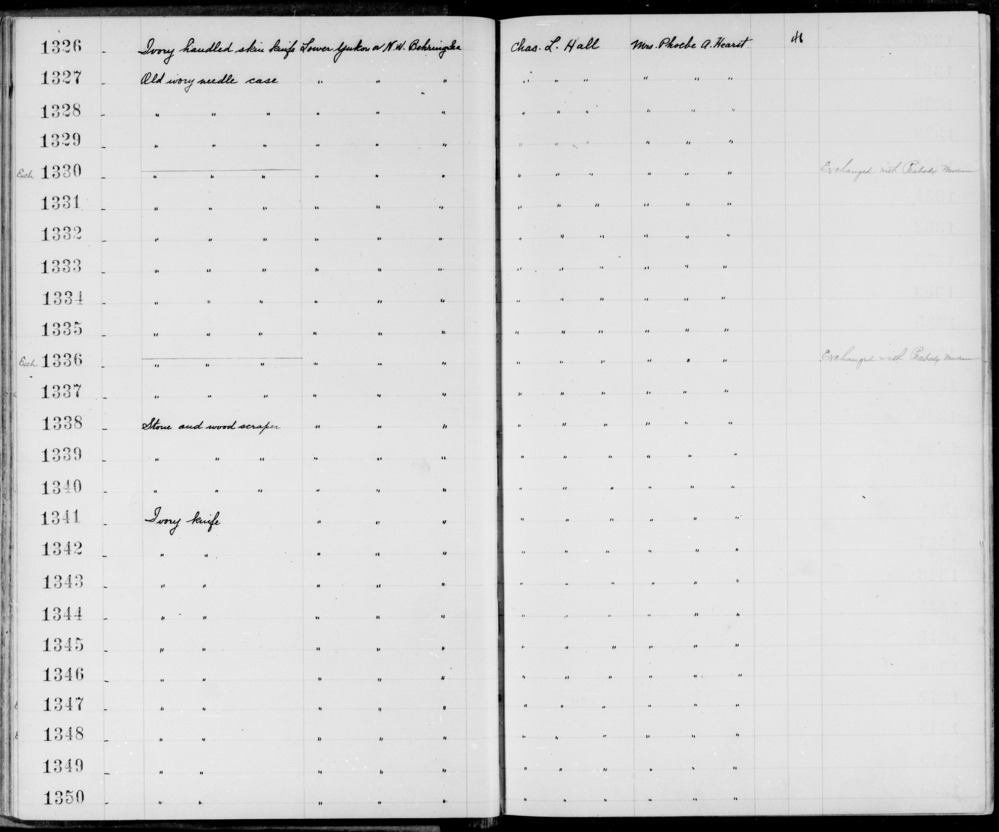 1326 Ivory handled skin knife Lower Yukon or N.W. Behring Sea Chas. L. Hall Mrs. Phoebe A. Hearst H
1327 Old ivory needle case " " " " " " " " "
1328 " " " " " " " " " " " "
1329 " " " " " " " " " " " "
Exch. 1330 " " " " " " " " " " " " Exchanged with Peabody Museum
1331 " " " " " " " " " " " "
1332 " " " " " " " " " " " "
1333 " " " " " " " " " " " "
1334 " " " " " " " " " " " "
1335 " " " " " " " " " " " "
Exch. 1336 " " " " " " " " " " " " Exchanged with Peabody Museum
1337 " " " " " " " " " " " "
1338 Stone and wood scraper " " " " " " " " "
1339 " " " " " " " " " " " "
1340 " " " " " " " " " " " "
1341 Ivory knife " " " " " " " " "
1342 " " " " " " " " " " "
1343 " " " " " " " " " " "
1344 " " " " " " " " " " "
1345 " " " " " " " " " " "
1346 " " " " " " " " " " "
1347 " " " " " " " " " " "
1348 " " " " " " " " " " "
1349 " " " " " " " " " " "
1350 " " " " " " " " " " "